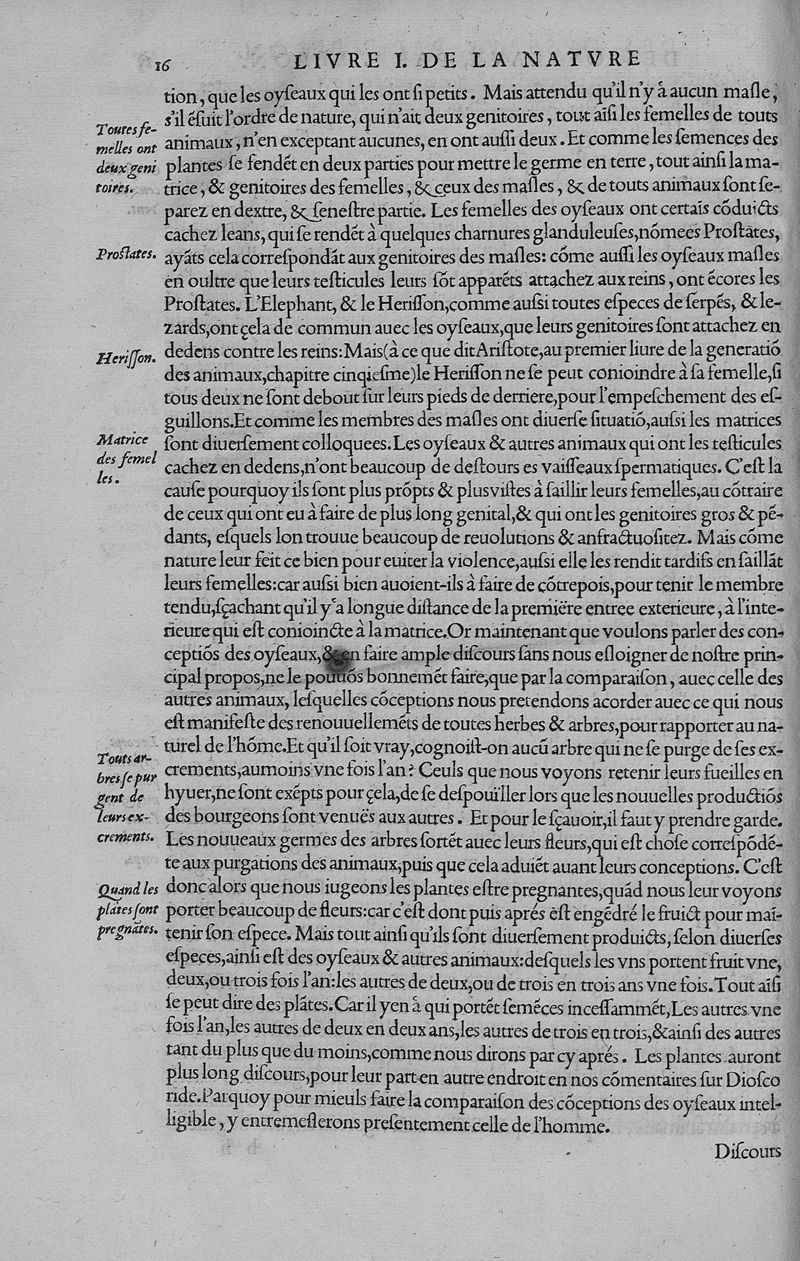 16
LIVRE I. DE LA NATVRE
tion, que les oyſeaux qui les ont ſi petits. Mais attendu qu'il n'y à aucun maſle,
s'il éſuit l'ordre de nature, qui n'ait deux genitoires, tout aĩſi les femelles de touts
animaux, n'en exceptant aucunes, en ont auſſi deux. Et comme les ſemences des
plantes ſe fendẽt en deux parties pour mettre le germe en terre, tout ainſi la ma-
trice, & genitoires des femelles, & ceux des maſles, & de touts animaux ſont ſe-
parez en dextre, & ſeneſtre partie. Les femelles des oyſeaux ont certaĩs cõduicts
cachez leans, qui ſe rendẽt à quelques charnures glanduleuſes, nõmees Proſtates,
ayãts cela correſpondãt aux genitoires des maſles: cõme auſſi les oyſeaux maſles
en oultre que leurs teſticules leurs ſõt apparẽts attachez aux reins, ont écores les
Proſtates. L'Elephant, & le Heriſſon, comme auſsi toutes eſpeces de ſerpẽs, & le-
zards, ont çela de commun auec les oyſeaux, que leurs genitoires ſont attachez en
dedens contre les reins: Mais (à ce que dit Ariſtote, au premier liure de la generatiõ
des animaux, chapitre cinqieſme) le Heriſſon ne ſe peut conioindre à ſa femelle, ſi
tous deux ne ſont debout ſur leurs pieds de derriere, pour l'empeſchement des eſ-
guillons. Et comme les membres des maſles ont diuerſe ſituatiõ, auſsi les matrices
ſont diuerſement colloquees. Les oyſeaux & autres animaux qui ont les teſticules
cachez en dedens, n'ont beaucoup de deſtours es vaiſſeaux ſpermatiques. C'eſt la
cauſe pourquoy ils ſont plus prõpts & plus viſtes à ſaillir leurs femelles, au cõtraire
de ceux qui ont eu à faire de plus long genital, & qui ont les genitoires gros & pẽ-
dants, eſquels lon trouue beaucoup de reuolutions & anfractuoſitez. Mais cõme
nature leur feit ce bien pour euiter la violence, auſsi elle les rendit tardifs en ſaillãt
leurs femelles: car auſsi bien auoient-ils à faire de cõtrepois, pour tenir le membre
tendu, ſçachant qu'il y a longue diſtance de la premiére entree exterieure, à l'inte-
rieure qui eſt conioincte à la matrice. Or maintenant que voulons parler des con-
ceptiõs des oyſeaux, & en faire ample diſcours ſans nous eſloigner de noſtre prin-
cipal propos, ne le pouuõs bonnemẽt faire, que par la comparaiſon, auec celle des
autres animaux, leſquelles cõceptions nous pretendons acorder auec ce qui nous
eſt manifeſte des renouuellemẽts de toutes herbes & arbres, pour rapporter au na-
turel de l'hõme. Et qu'il ſoit vray, cognoiſt-on aucũ arbre qui ne ſe purge de ſes ex-
crements, aumoins vne fois l'an? Ceuls que nous voyons retenir leurs fueilles en
hyuer, ne ſont exẽpts pour çela, de ſe deſpoüiller lors que les nouuelles productiõs
des bourgeons ſont venuës aux autres. Et pour le ſçauoir, il faut y prendre garde.
Les nouueaux germes des arbres ſortẽt auec leurs fleurs, qui eſt choſe correſpõdẽ-
te aux purgations des animaux, puis que cela aduiẽt auant leurs conceptions. C'eſt
donc alors que nous iugeons les plantes eſtre pregnantes, quãd nous leur voyons
porter beaucoup de fleurs: car c'eſt dont puis aprés eſt engẽdré le fruict pour maĩ-
tenir ſon eſpece. Mais tout ainſi qu'ils ſont diuerſement produicts, ſelon diuerſes
eſpeces, ainſi eſt des oyſeaux & autres animaux: deſquels les vns portent fruit vne,
deux, ou trois fois l'an: les autres de deux, ou de trois en trois ans vne fois. Tout aĩſi
ſe peut dire des plãtes. Car il y en à qui portẽt ſemẽces inceſſammẽt, Les autres vne
fois l'an, les autres de deux en deux ans, les autres de trois en trois, & ainſi des autres
tant du plus que du moins, comme nous dirons par cy aprés. Les plantes auront
plus long diſcours, pour leur part en autre endroit en nos cõmentaires ſur Dioſco
ride. Parquoy pour mieuls faire la comparaiſon des cõceptions des oyſeaux intel-
ligible, y entremeſlerons preſentement celle de l'homme.
Diſcours
Toutes fe-
melles ont
deux geni
toires.
Proſtates.
Heriſſon.
Matrice
des femel
les.
Touts ar-
bres ſe pur
gent de
leurs ex-
crements.
Quand les
plãtes ſont
pregnãtes.